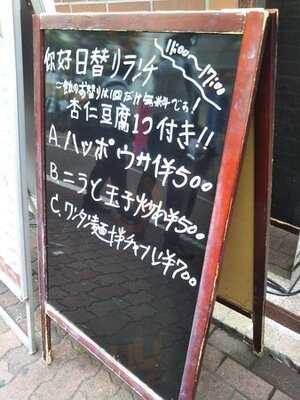 你好日替りランチ
11:00〜17:00
〜飯のお替りは1回だけ無料です!
杏仁豆腐1つ付き!!
A.ハッポウサイ¥500
B.ニラと玉子炒め¥500
C.ワンタン麺+半チャーハン¥700